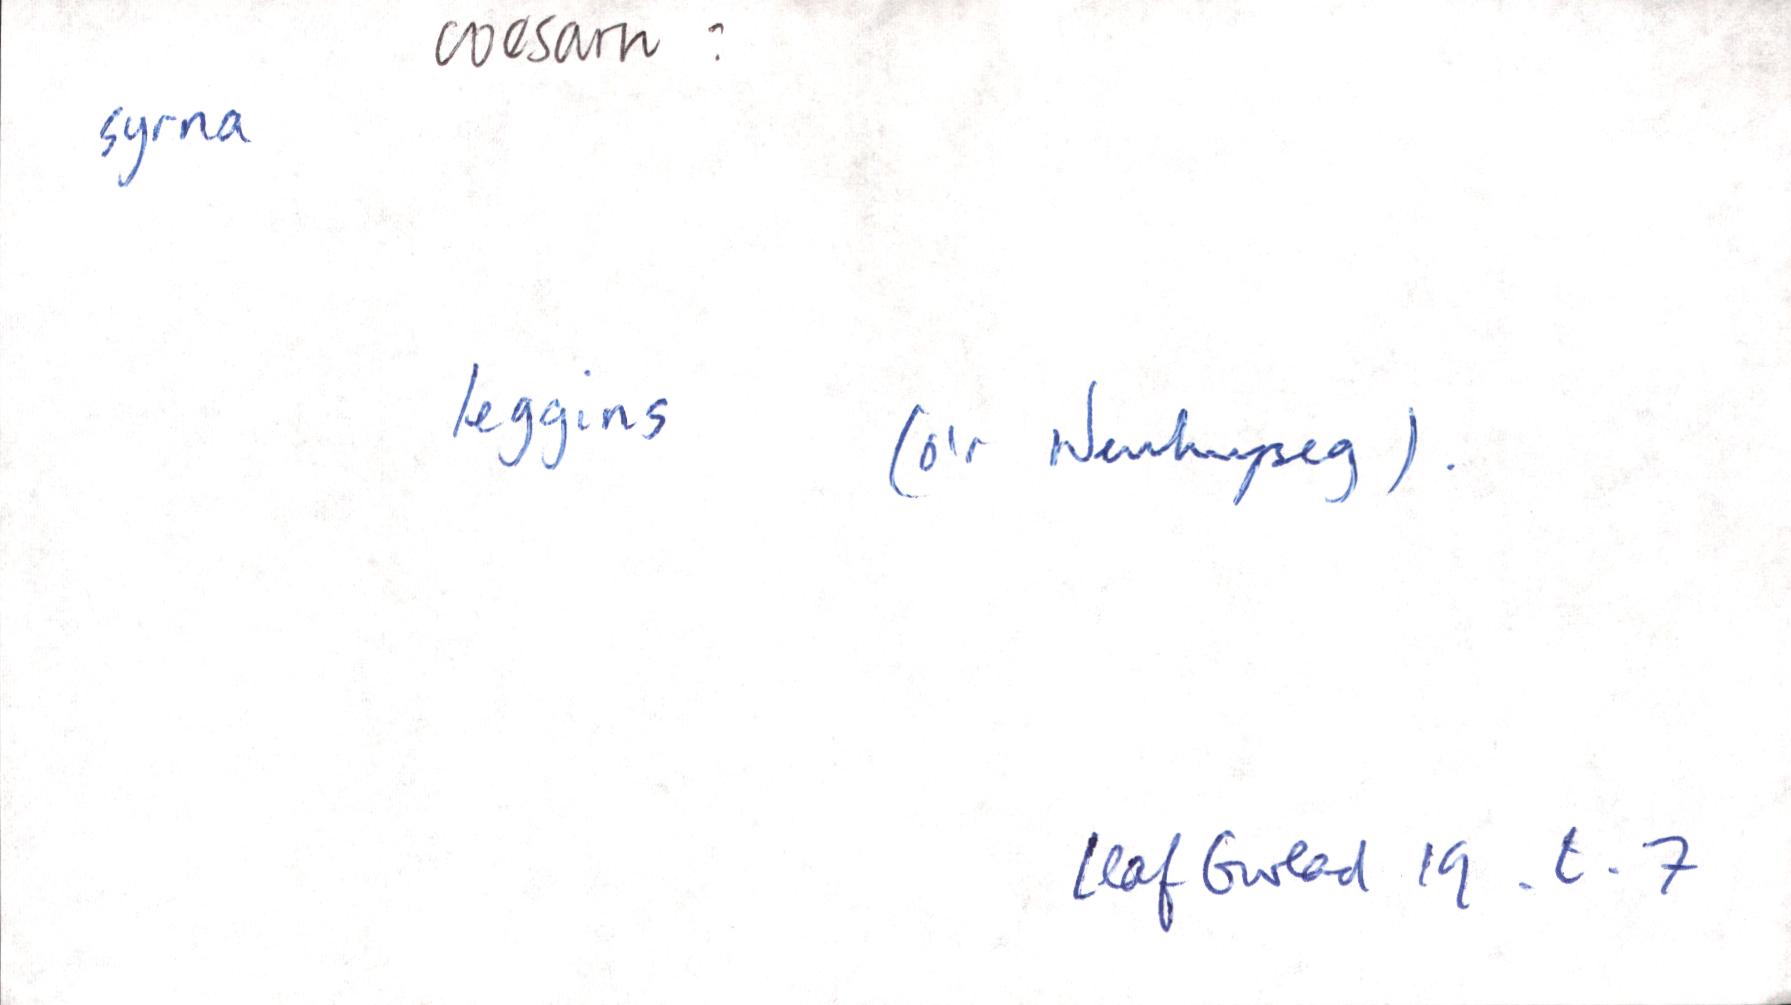 coesarn ?
syrna
leggins (o'r Wenhwyseg).
Llafar Gwlad 19. t. 7